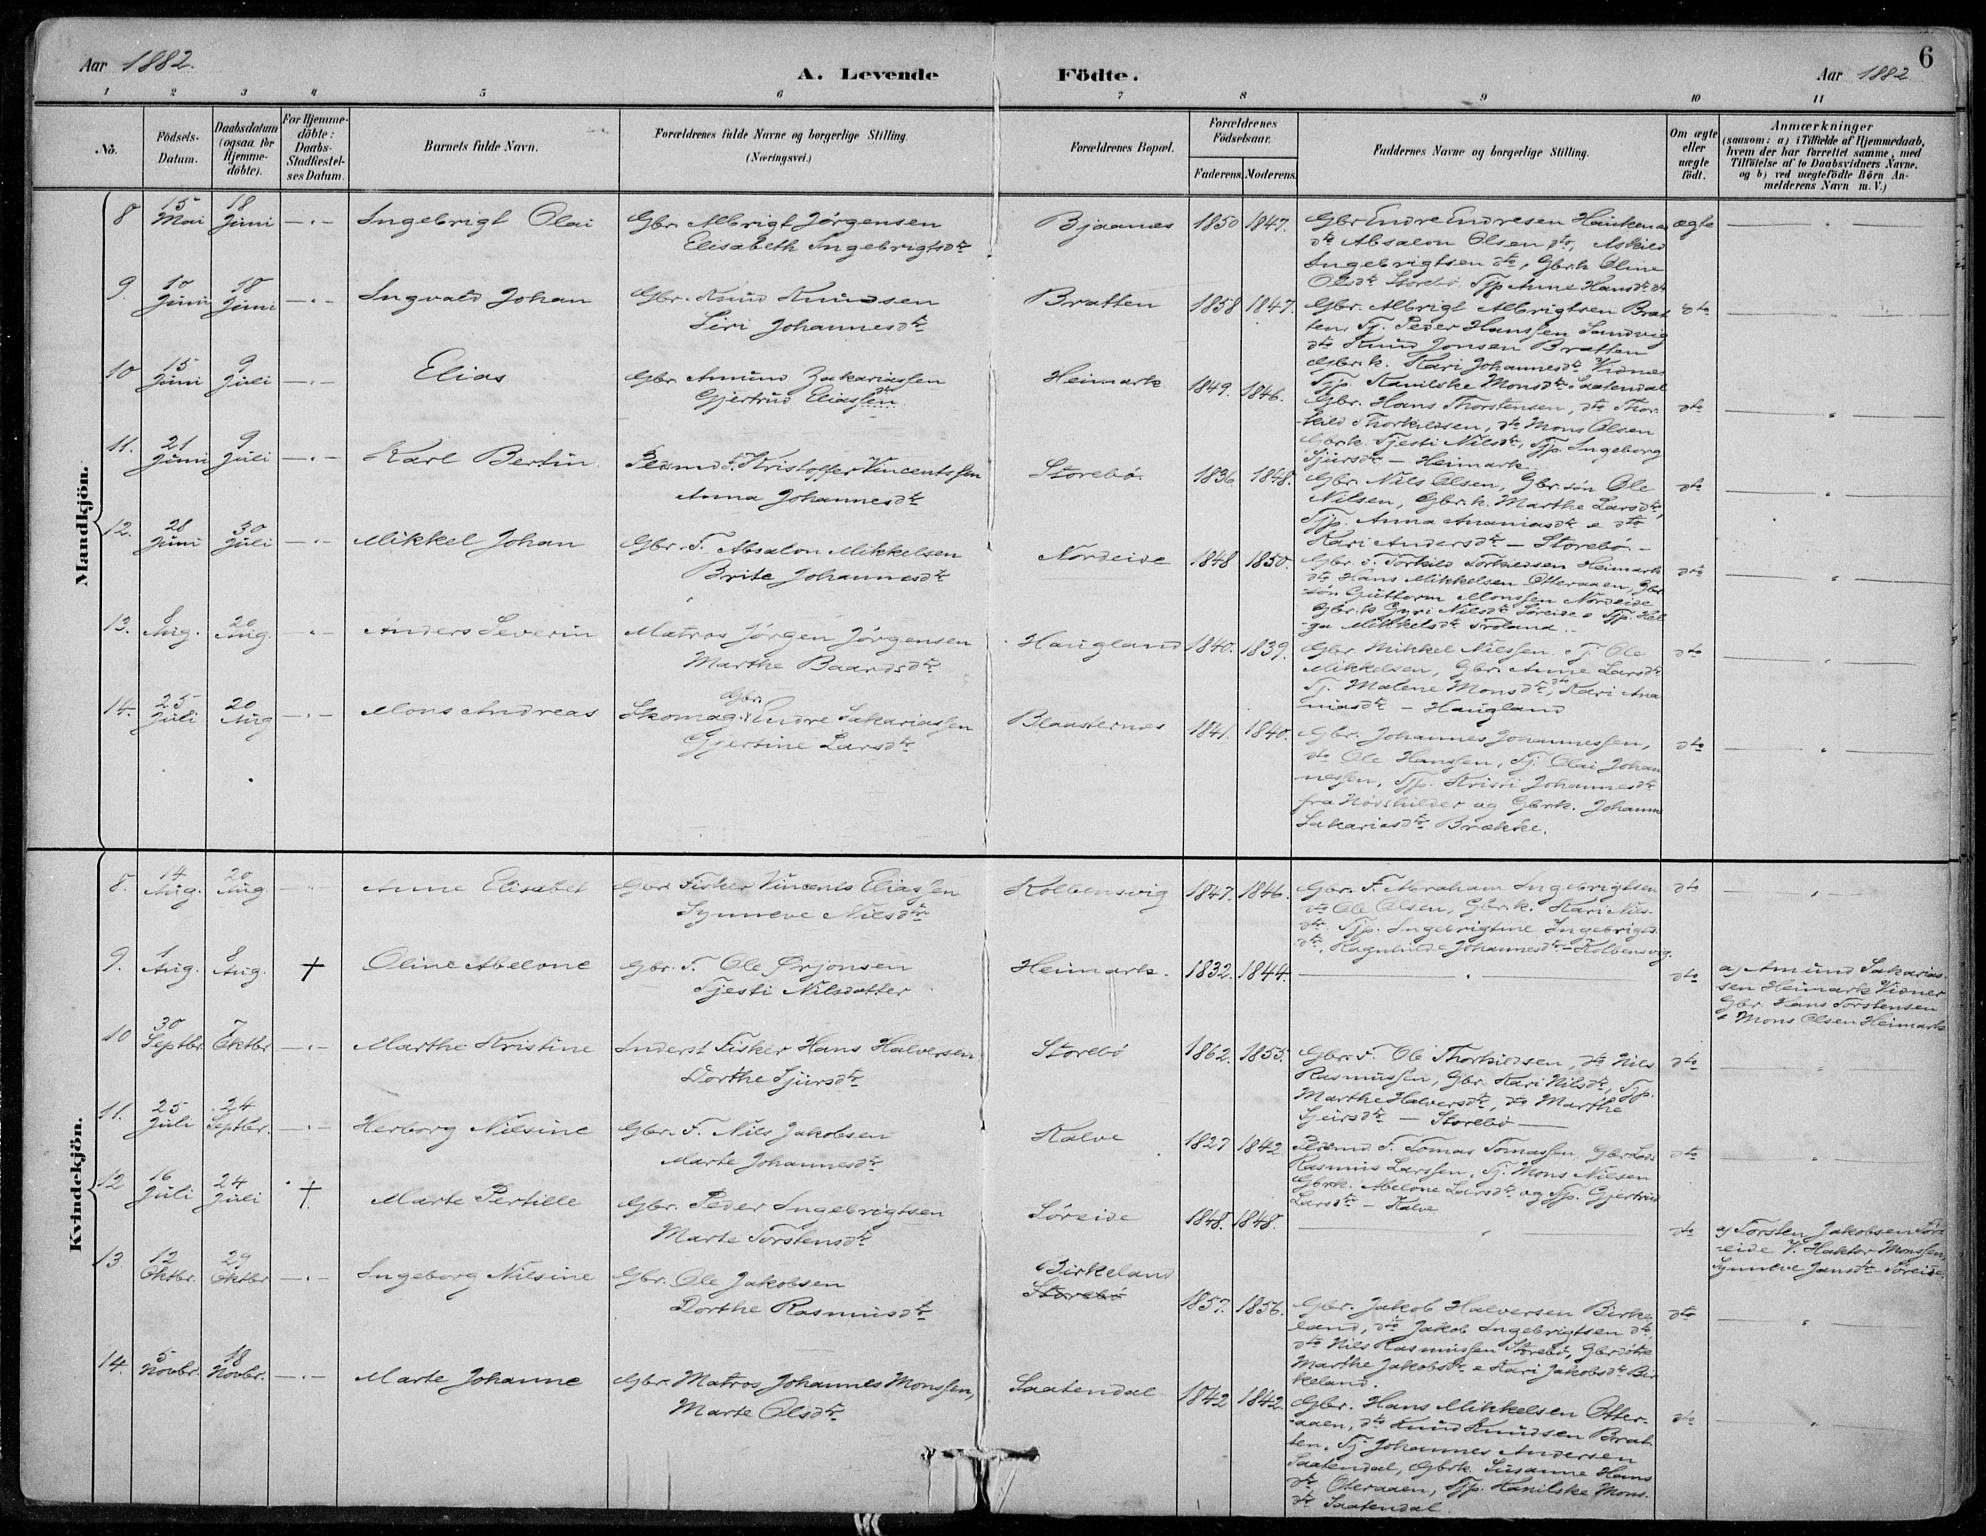 Aar 1882.
A. Levende Födte.
Aar 1882
6
1 2 3 4 5 6 7 8 9 10 11
No.
Födsels-Datum.
Daabsdatum (ogsaa for Hjemmedöbte).
For Hjemmedöbte: Daabs-Stadfestelses Datum.
Barnets fulde Navn.
Forældrenes fulde Navne og borgerlige Stilling. (Næringsvei.)
Forældrenes Bopæl.
Forældrenes Födselsaar.
Faderens. Moderens.
Faddernes Navne og borgerlige Stilling.
Om ægte eller uægte födt.
Anmærkninger
(saasom: a) i Tilfælde af Hjemmedaab,
hvem der har forrettet samme, med
Tilföielse af to Daabsvidners Navne.
og b) ved uægtefödte Börn Anmelderens Navn m. V.)
Mandkjön.
8 15 Mai 18 Juni — Ingebrigt Olai
Gbr. Albrigt Jørgensen
Elisabeth Ingebrigtsdtr
Bjaanes 1850 1847.
Gbr Endre Endresen Haukenæs
dto Absalon Olsen dto, Askild
Ingebrigtsen dto, Gbr.k Oline
Olsdtr Storebø. Tjp Anne Hansdtr dto
ægte
9. 10 Juni 18 Juni — Ingvald Johan
Gbr. Knud Knudsen
Siri Johannesdtr
Bratten 1858 1847.
Gbr. Albrigt Albrigtsen Brat
ten, Tj. Peder Hanssen Sandvig
dto Knud Jonsen Bratten
Gbr.k. Kari Johannesdtr Vidnes
Tjp. Kanilske Monsdtr Saatendal
dto
10 15 Juni 9 Juli — Elias
Gbr Amund Zakariassen
Gjertrud Eliassen
Heimark 1849. 1846.
Gbr. Hans Thorstensen, dto Thor-
kild Thorkildsen, dto Mons Olsen
Gbrk Tjesti Nilsdtr, Tjp. Ingeborg
Sjursdtr — Heimark
dto
11. 21 Juni 9 Juli — Karl Bertin
Pedmd F. Kristoffer Vincentssen
Anna Johannesdtr
Storebø. 1836 1848.
Gbr. Nils Olsen, Gbr.søn Ole
Nilsen, Gbr.k. Marthe Larsdtr,
Tjp. Anna Ananiasdtr e dto
Kari Andersdtr — Storebø. —
dto
12. 28 Juni 30 Juli — Mikkel Johan
Gbr. F. Absalon Mikkelsen
Brite Johannesdtr
Nordeide 1848 1850.
Gbr. F. Torkild Torkildsen Heimark
dto Hans Mikkelsen Otteraaen, Gbr
søn Guttorm Monssen Nordeide
Gbr.k Guri Nilsdtr Søreide e Tjp. Hel
ga Mikkelsdtr Troland.
dto
13. 8 Aug. 20 Aug. — Anders Severin
Matros Jørgen Jørgensen
Marthe Baardsdtr
Haugland 1840. 1839.
Gbr. Mikkel Nilssen. Tj. Ole
Mikkelsen, Gbr. Anne Larsdtr
Tj. Malene Monsdtr, dto Kari Ana
niasdtr — Haugland
dto
14. 25 Juli 20 Aug — Mons Andreas
Skomag. Gbr. Endre Sakariassen
Gjertine Larsdtr
Blaasternes 1841. 1840.
Gbr. Johannes Johannessen,
dto Ole Hanssen, Tj. Olai Johan
nessen, Tjp. Kristi Johannesdtr
fra Nordskilder og Gbrk. Johanne
Sakariasdtr Brække.
dto
Kvindekjön.
8. 14 Aug. 20 Aug — Anne Elisabet
Gbr. Fisker Vincents Eliassen
Synneve Nilsdtr
Kolbensvig 1847. 1846.
Gbr. F. Abraham Ingebrigtsen
dto Ole Olsen, Gbr.k. Kari Nils-
dtr Tjp. Ingebrigtine Ingebrigts
dtr, Ragnhilde Johannesdtr — Kolbensvig
dto
9. 1 Aug. 8 Aug. † Oline Abelone
Gbr. F. Ole Ørjonsen
Tjesti Nilsdatter
Heimark. 1832. 1844.
dto
a) Amund Sakarias
sen Heimark Vidner
Gbr. Hans Torstensen
e Mons Olsen Heimark
10 30 Septbr. 7 Oktbr — Marthe Kristine
Inderst Fisker Hans Halversen
Dorthe Sjursdtr
Storebø 1862. 1855.
Gbr. F. Ole Thorkildsen, dto Nils
Rasmussen, Gbr. Kari Nilsdtr, Tjp.
Marthe Halversdtr, dto Marthe
Sjursdtr — Storebø —
dto
11. 25 Juli 24 Septbr. — Herborg Nilsine
Gbr. F. Nils Jakobsen
Marte Johannesdtr
Kalve 1827 1842
Pedsmd F. Tomas Tomassen, Gbr
Rasmus Larssen, Tj. Mons Nilsen
Gbrk. Abelone Larsdtr og Tjp. Gjertrud
Larsdtr — Kalve
dto
12 16 Juli 24 Juli † Marte Pertille
Gbr. Peder Ingebrigtsen
Marte Torstensdtr
Søreide 1848. 1848.
dto
a) Torsten Jakobsen Sør-
eide V. Haktor Monssen,
Synneve Jansdtr Søreide
13. 12 Oktbr. 29 Oktbr — Ingeborg Nilsine
Gbr. Ole Jakobsen
Dorthe Rasmusdtr
Birkeland
Storebø
1857. 1856.
Gbr. Jakob Halversen Birke
land, dto Jakob Ingebrigtsen dto,
dto Nils Rasmussen Storebø, Gbrdøtre
Marthe Jakobsdtr e Kari Jakobsdtr Bir
keland.
dto
14. 5 Novbr. 18 Novbr. — Marte Johanne
Gbr. Matros Johannes Monssen,
Marte Olsdtr
Saatendal 1842 1842
Gbr. Hans Mikkelsen Otter-
aaen, dto Knud Knudsen Brat
ten, Tj. Johannes Andersen
Saatendal, Gbrk. Susanne Hans
dtr Oteraaen, Tjp. Kanilske Mons-
dtr Saatendal.
dto